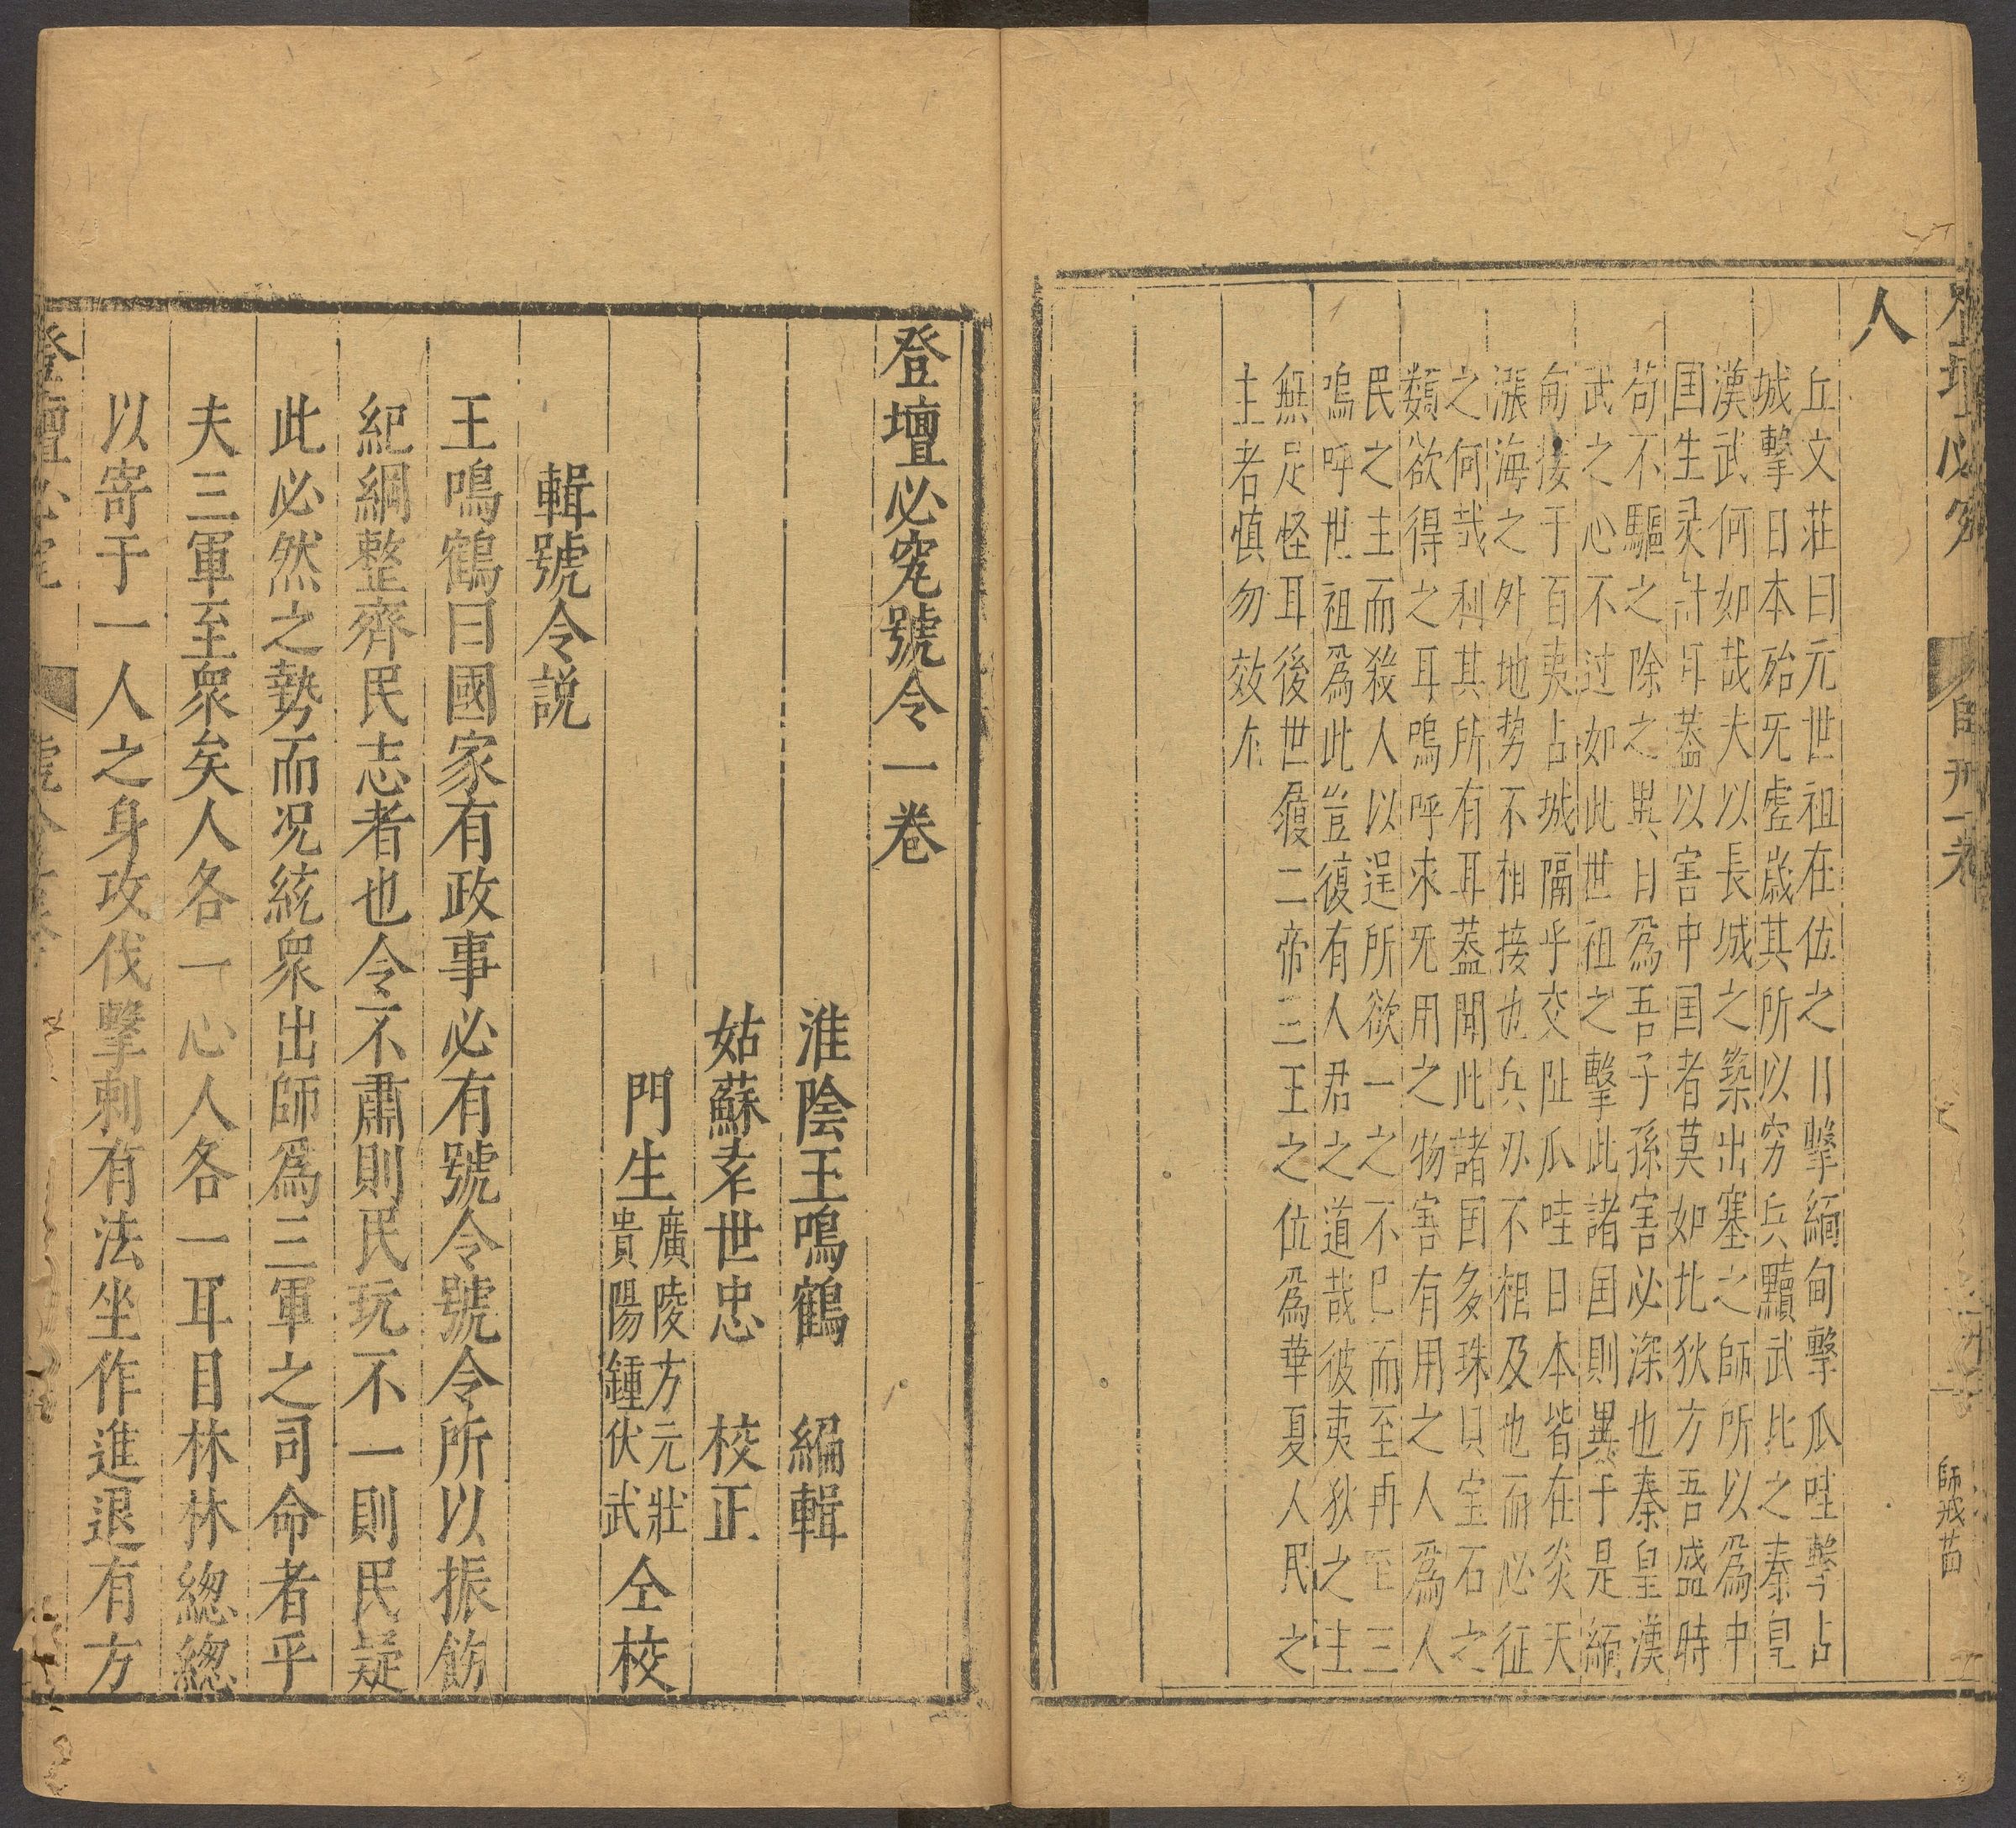 人
丘文莊曰元世祖在位之日擊緬甸擊爪哇擊占
城擊日本殆旡虛歲其所以穷兵黷武比之秦皇
漢武何如哉夫以長城之築出塞之師所以爲中
囯生灵計耳蓋以害中囯者莫如北狄方吾盛時
苟不驅之除之異日爲吾子孫害必深也秦皇漢
武之心不过如此世祖之擊此諸囯則異于是緬
甸接于百夷占城隔乎交趾爪哇日本皆在炎天
漲海之外地势不相接也兵刃不相及也而必征
之何哉利其所有耳蓋聞此諸囯多珠貝宝石之
類欲得之耳嗚呼求旡用之物害有用之人爲人
民之主而殺人以逞所欲一之不已而至再至三
嗚呼世祖爲此豈復有人君之道哉彼夷狄之主
無足怪耳後世履二帝三王之位爲華夏人民之
主者慎勿效尓
登壇必究號令一卷
淮陰王鳴鶴　編輯
姑蘇李世忠　校正
門生廣陵方元壯
貴陽鍾伏武仝校
輯號令説
王鳴鶴曰國家有政事必有號令號令所以振飭
紀綱整齊民志者也令不肅則民玩不一則民疑
此必然之勢而况統衆出師爲三軍之司命者乎
夫三軍至衆矣人各一心人各一耳目林林緫緫
以寄于一人之身攻伐擊刺有法坐作進退有方